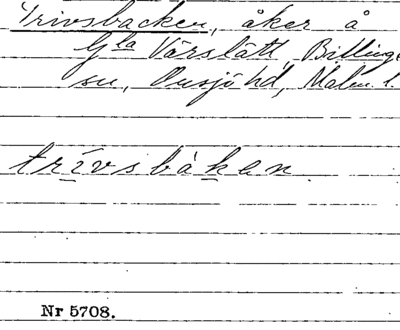 Trivsbacken, åker å
Gla Värslätt, Billinge
sn, Onsjö hd, Malm. l.
trívsbàken
Nr 5708.